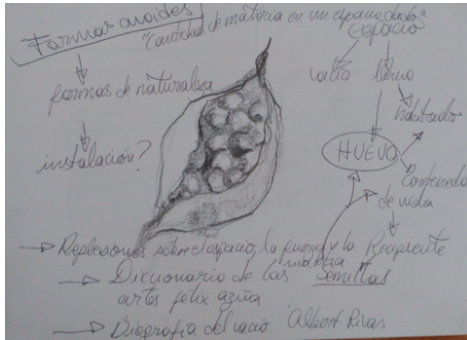 Formas ovoides
"Cantidad de materia en un espacio dado"
espacio
vacío lleno
formas de naturaleza
habitado
instalación?
HUEVO
Contenedor
de vida
Reflexiones sobre el espacio, la fuerza y la Recipiente
materia
Diccionario de las Semillas
artes felix azúa
Biografía del vacío Albert Ribas